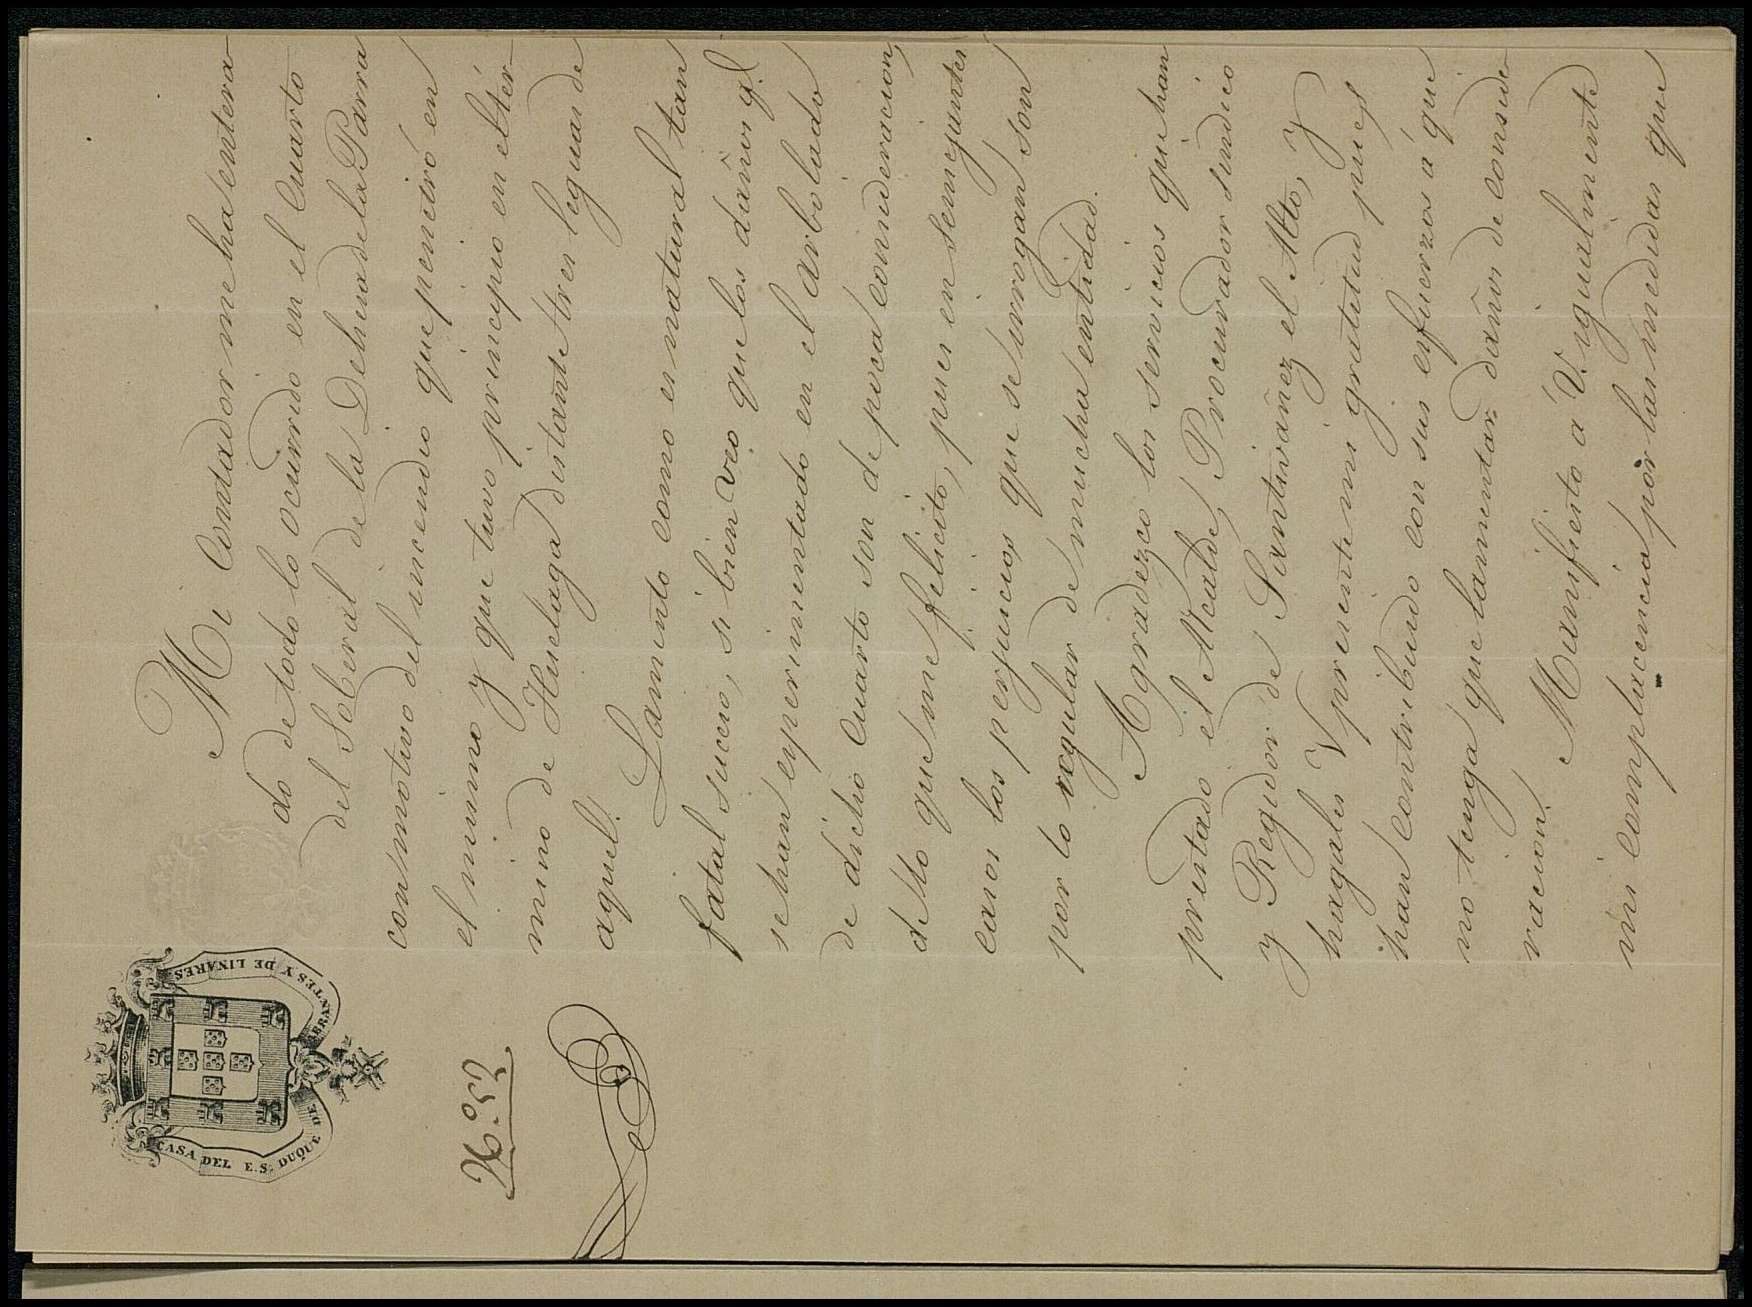 CASA DEL E.S. DUQUE DE ABRANTES Y DE LINARES
N.º 52
Mi Contador me ha entera
do de todo lo ocurrido en el Cuarto
del Hociral de la Dehesa de la Parra
con motivo del incendio que penetró en
el mismo y que tuvo principio en el tér
mino de Huelaga distante tres leguas de
aquel.
Lamento como es natural tan
fatal suceso, si bien veo que los daños q.e
se han experimentado en el arbolado
de dicho Cuarto son de poca consideracion,
de lo que me felicito, pues en semejantes
casos los perjuicios que se irrogan son
por lo regular de mucha entidad.
Agradezco los servicios que han
prestado el Alcalde, Procurador sindico
y Regidor de Santivañez el Alto, y
hagales V presente mi gratitud pues
han contribuido con sus esfuerzos á que
no tenga que lamentar daños de conside
racion.
Manifiesto á V. igualmente
mi complacencia por las medidas que